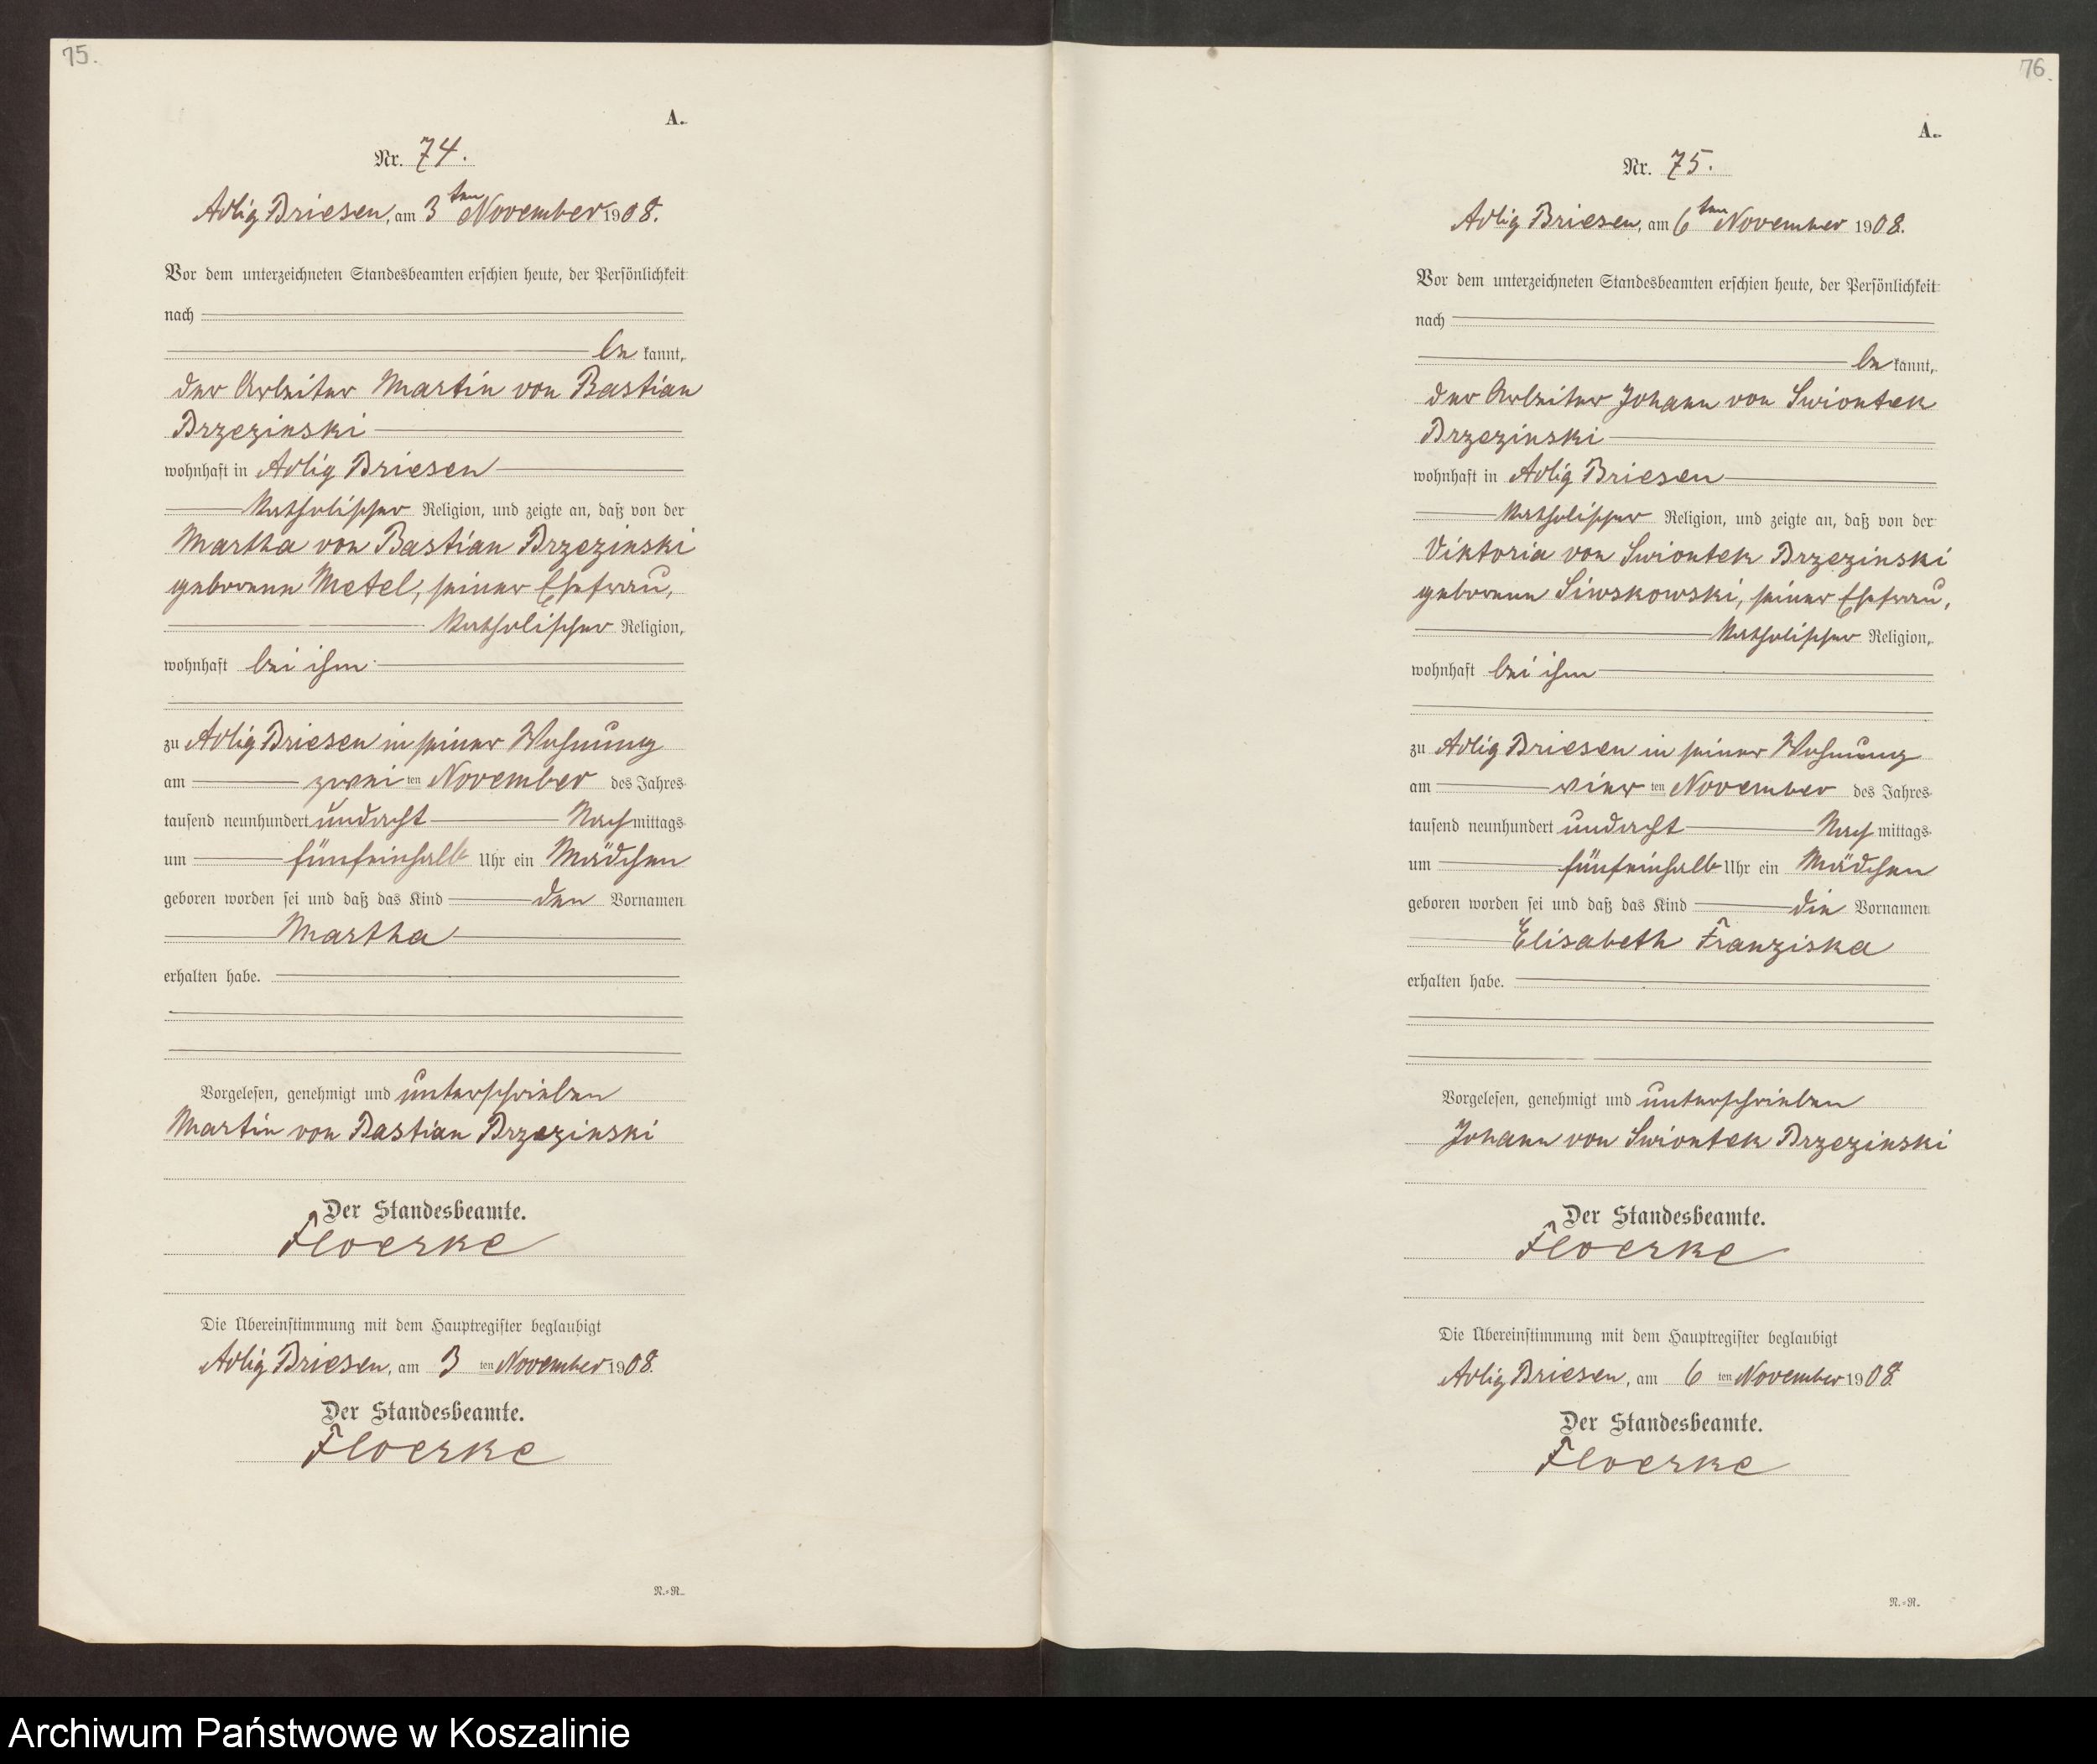 75.
A.
Nr. 74.
Adlig Briesen, am 3ten November 1908.
Vor dem unterzeichneten Standesbeamten erschien heute, der Persönlichkeit
nach
be kannt,
der Arbeiter Martin von Bastian
Brzezinski
wohnhaft in Adlig Briesen
katholischer Religion, und zeigte an, daß von der
Martha von Bastian Brzezinski
geborenen Metel, seiner Ehefrau,
katholischer Religion,
wohnhaft bei ihm
zu Adlig Briesen in seiner Wohnung
am zwei ten November des Jahres
tausend neunhundert undacht Nach mittags
um fünfeinhalb Uhr ein Mädchen
geboren worden sei und daß das Kind den Vornamen
Martha
erhalten habe.
Vorgelesen, genehmigt und unterschrieben
Martin von Bastian Brzezinski
Der Standesbeamte.
Floerke
Die Übereinstimmung mit dem Hauptregister beglaubigt
Adlig Briesen, am 3 ten November 1908.
Der Standesbeamte.
Floerke
N.=R.
76.
A.
Nr. 75.
Adlig Briesen, am 6ten November 1908.
Vor dem unterzeichneten Standesbeamten erschien heute, der Persönlichkeit
nach
be kannt,
der Arbeiter Johann von Swiontek
Brzezinski
wohnhaft in Adlig Briesen
katholischer Religion, und zeigte an, daß von der
Viktoria von Swiontek Brzezinski
geborenen Siwskowski, seiner Ehefrau,
katholischer Religion,
wohnhaft bei ihm
zu Adlig Briesen in seiner Wohnung
am vier ten November des Jahres
tausend neunhundert undacht Nach mittags
um fünfeinhalb Uhr ein Mädchen
geboren worden sei und daß das Kind die Vornamen
Elisabeth Franziska
erhalten habe.
Vorgelesen, genehmigt und unterschrieben
Johann von Swiontek Brzezinski
Der Standesbeamte.
Floerke
Die Übereinstimmung mit dem Hauptregister beglaubigt
Adlig Briesen, am 6 ten November 1908.
Der Standesbeamte.
Floerke
N.=R.
Archiwum Państwowe w Koszalinie